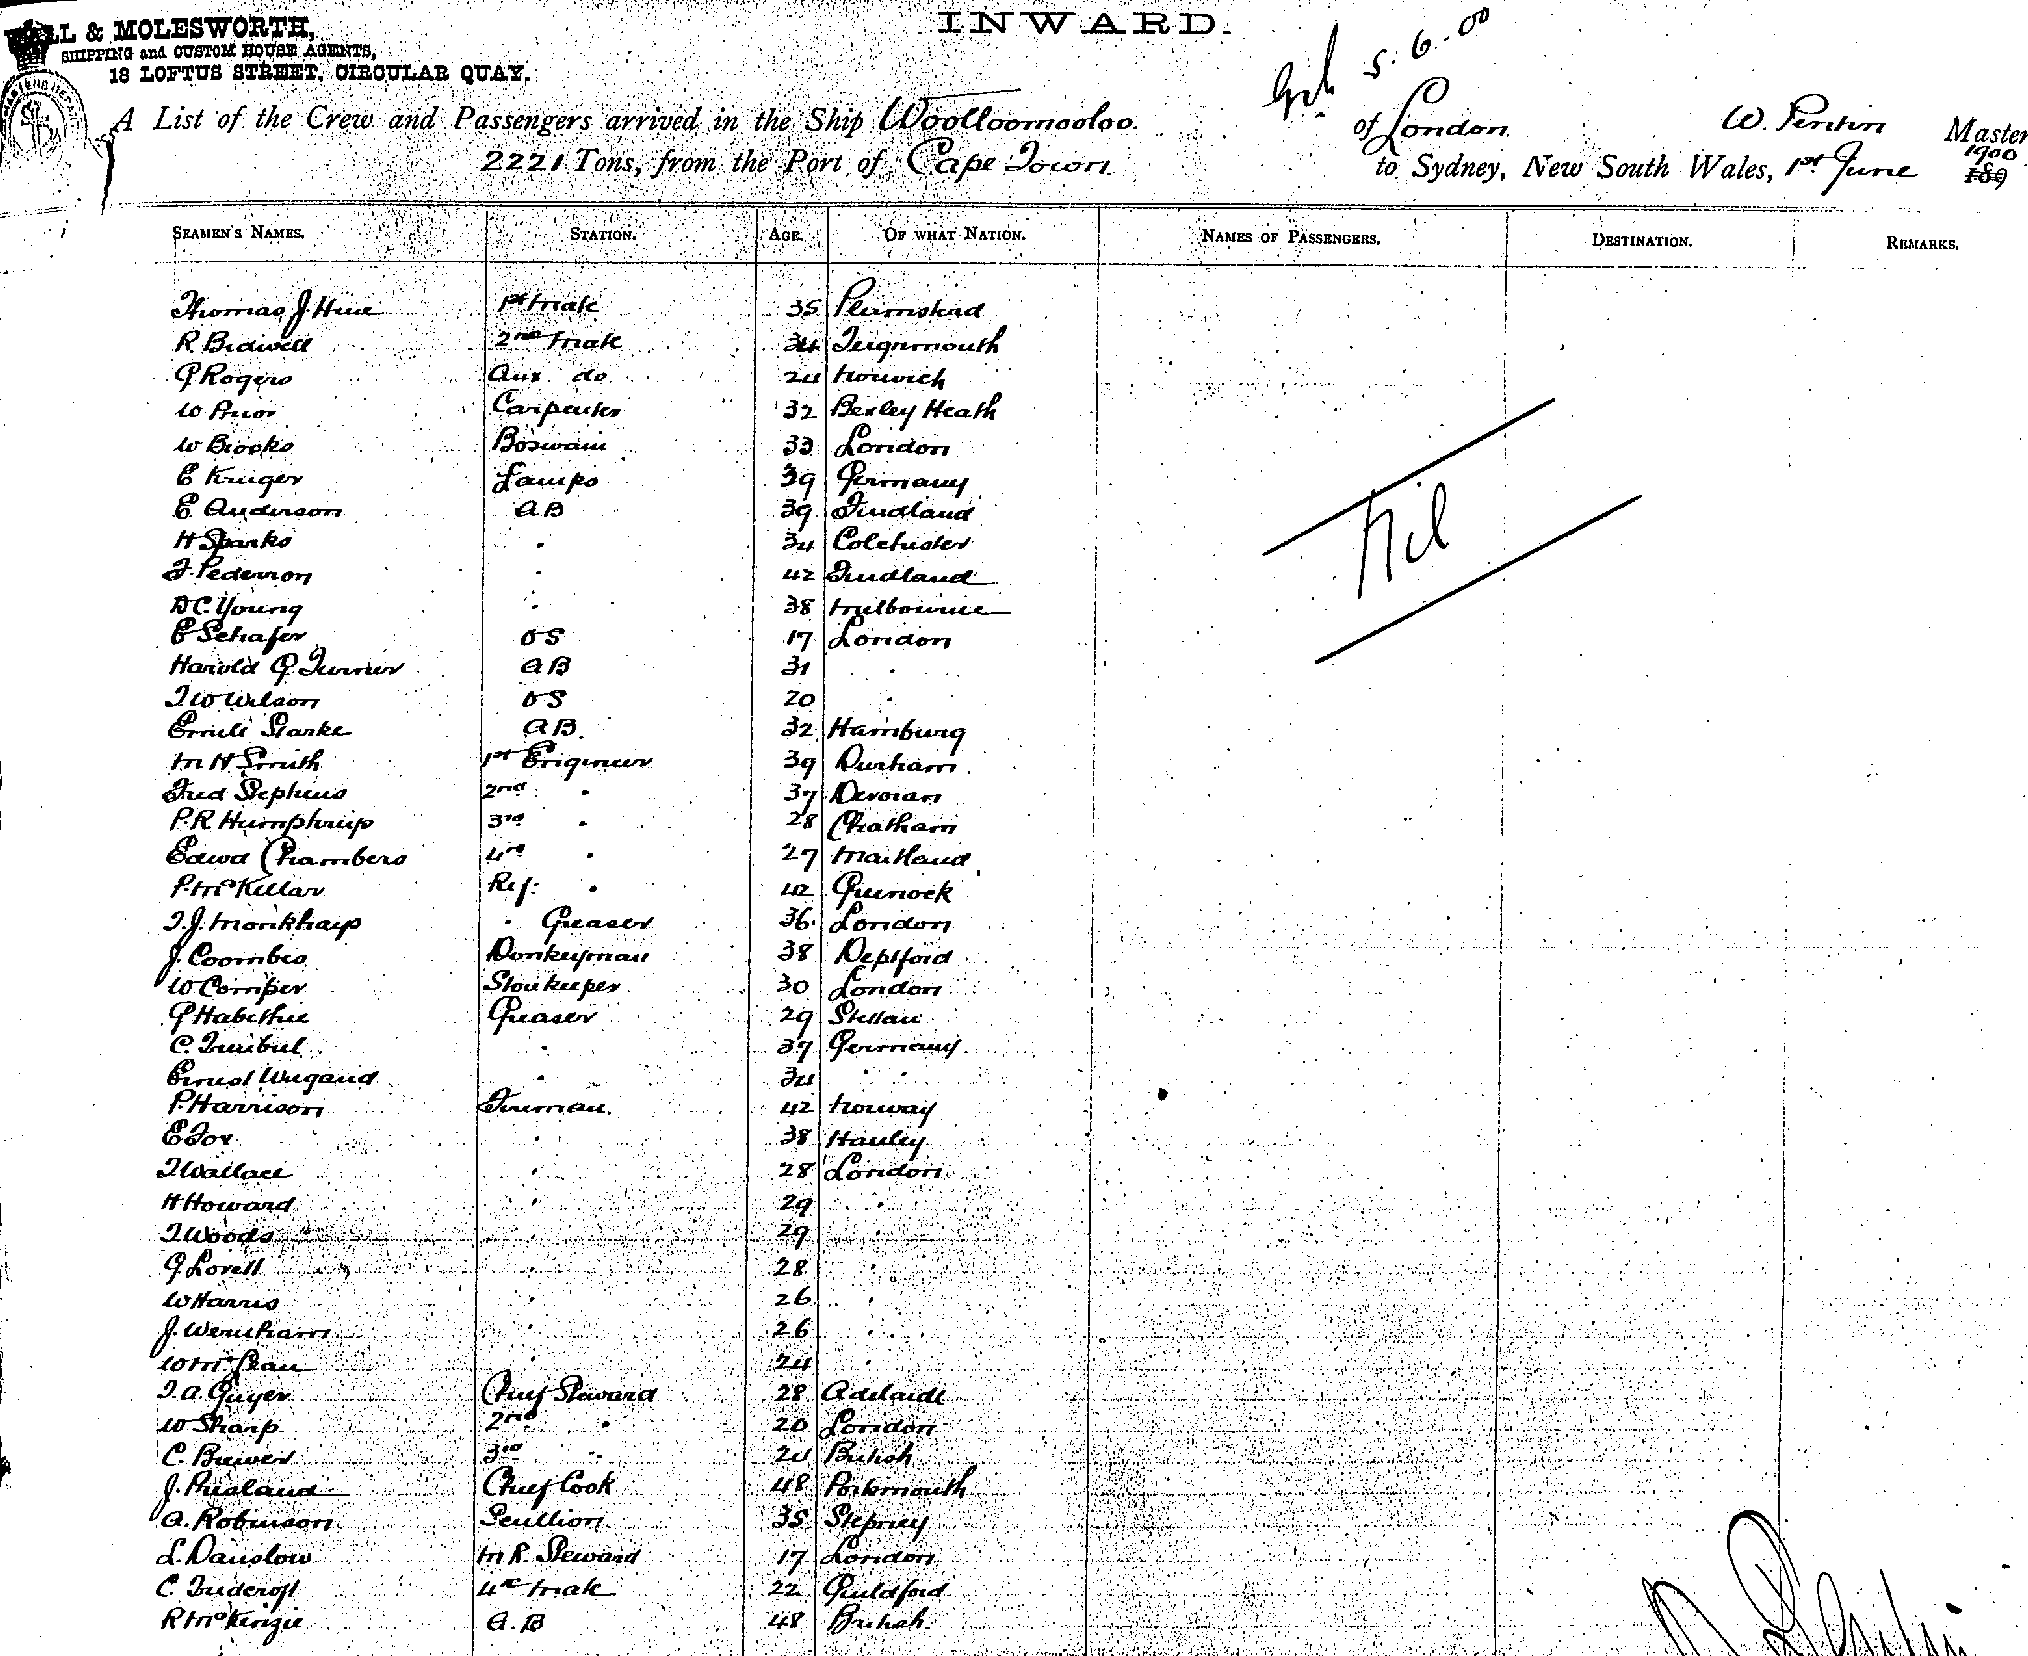 LL & MOLESWORTH,
SHIPPING and CUSTOM HOUSE AGENTS,
18 LOFTUS STREET, CIRCULAR QUAY.
INWARD.
5.6.00
A List of the Crew and Passengers arrived in the Ship Woolloomooloo. of London W. Pentin Master
2221 Tons, from the Port of Cape Town to Sydney, New South Wales, 1st June 1900 189
SEAMEN'S NAMES. STATION. AGE. OF WHAT NATION. NAMES OF PASSENGERS. DESTINATION. REMARKS.
Thomas J. Hine 1st Mate 35 Plumstead
R Bidwell 2nd Mate 34 Teignmouth
G Rogers Aux. do 24 Norwich
W Prior Carpenter 32 Bexley Heath
W Brooks Boswain 33 London
E Kruger Lamps 39 Germany
E Anderson AB 39 Findland
H Sparks " 34 Colchester
F. Pederson " 42 Findland
D C. Young " 38 Melbourne
E Schafer OS 17 London
Harold G Turner AB 31 "
T W Wilson OS 20 "
Emile Starke AB. 32 Hamburg
M H Smith 1st Engineer 39 Durham
Fred Stephens 2nd " 37 Devoran
P. R Humphries 3rd " 28 Chatham
Edwd Chambers 4th " 27 Maitland
P. McKellar Ref: " 42 Greenock
T. J. Monkhays " Greaser 36 London
J. Coombes Donkeyman 38 Deptford
W Comper Storekeeper 30 London
G Habethie Greaser 29 Stettau
C. Turibul " 37 Germany
Ernest Wiegand " 34 " "
P. Harrison Fireman. 42 Norway
E Fox " 38 Hanley
T Wallace " 28 London
H Howard " 29 "
T Woods " 29 "
G Lovell " 28 "
W Harris " 26 "
J. Wenham " 26 "
W McLean " 24 "
T. A. Guyer Chief Steward 28 Adelaide
W Sharp 2nd " 20 London
C. Brewer 3rd " 24 British
J. Presland Chief Cook 48 Portsmouth
A. Robinson Scullion 35 Stepney
L. Danslow M. R. Steward 17 London
C. Tidcroft 4th Mate 22 Guildford
R McKenzie A. B 48 British
Nil